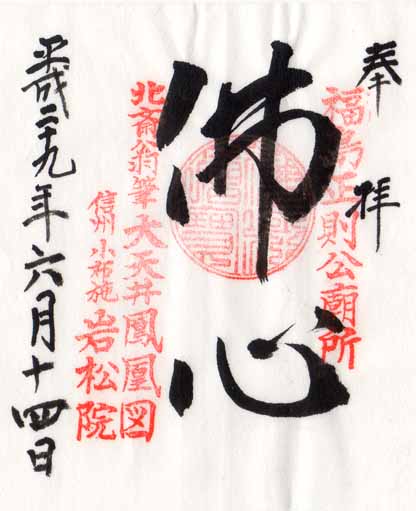 奉拝
福島正則公廟所
佛心
北斎翁筆大天井鳳凰図
信州小布施岩松院
平成二十九年六月十四日